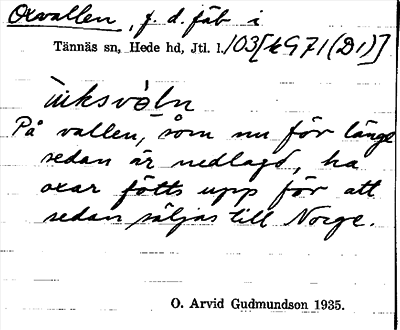 Oxvallen, f. d. fäb i
Tännäs sn, Hede hd, Jtl. l. 103
På vallen, som nu för länge
sedan är nedlagd, ha
oxar fötts upp för att
sedan säljas till Norge.
O. Arvid Gudmundson 1935.